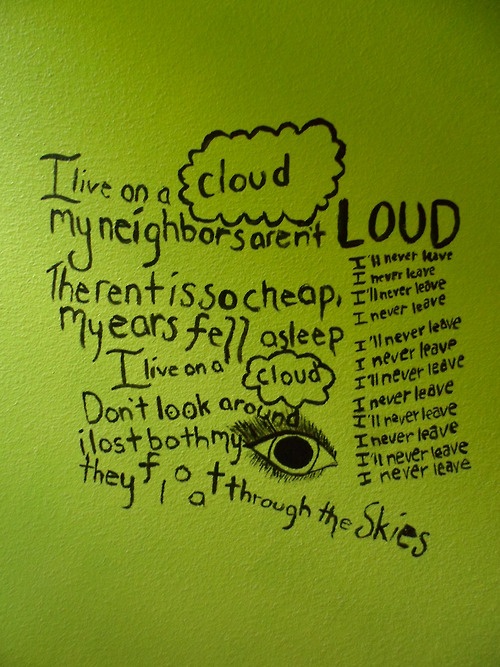 I live on a cloud
my neighbors aren't LOUD
The rent is so cheap,
My ears fell asleep
I live on a cloud
Don't look around
i lost both my
they float through the Skies
I'll never leave
I never leave
I'll never leave
I never leave
I'll never leave
I never leave
I'll never leave
I never leave
I'll never leave
I never leave
I'll never leave
I never leave